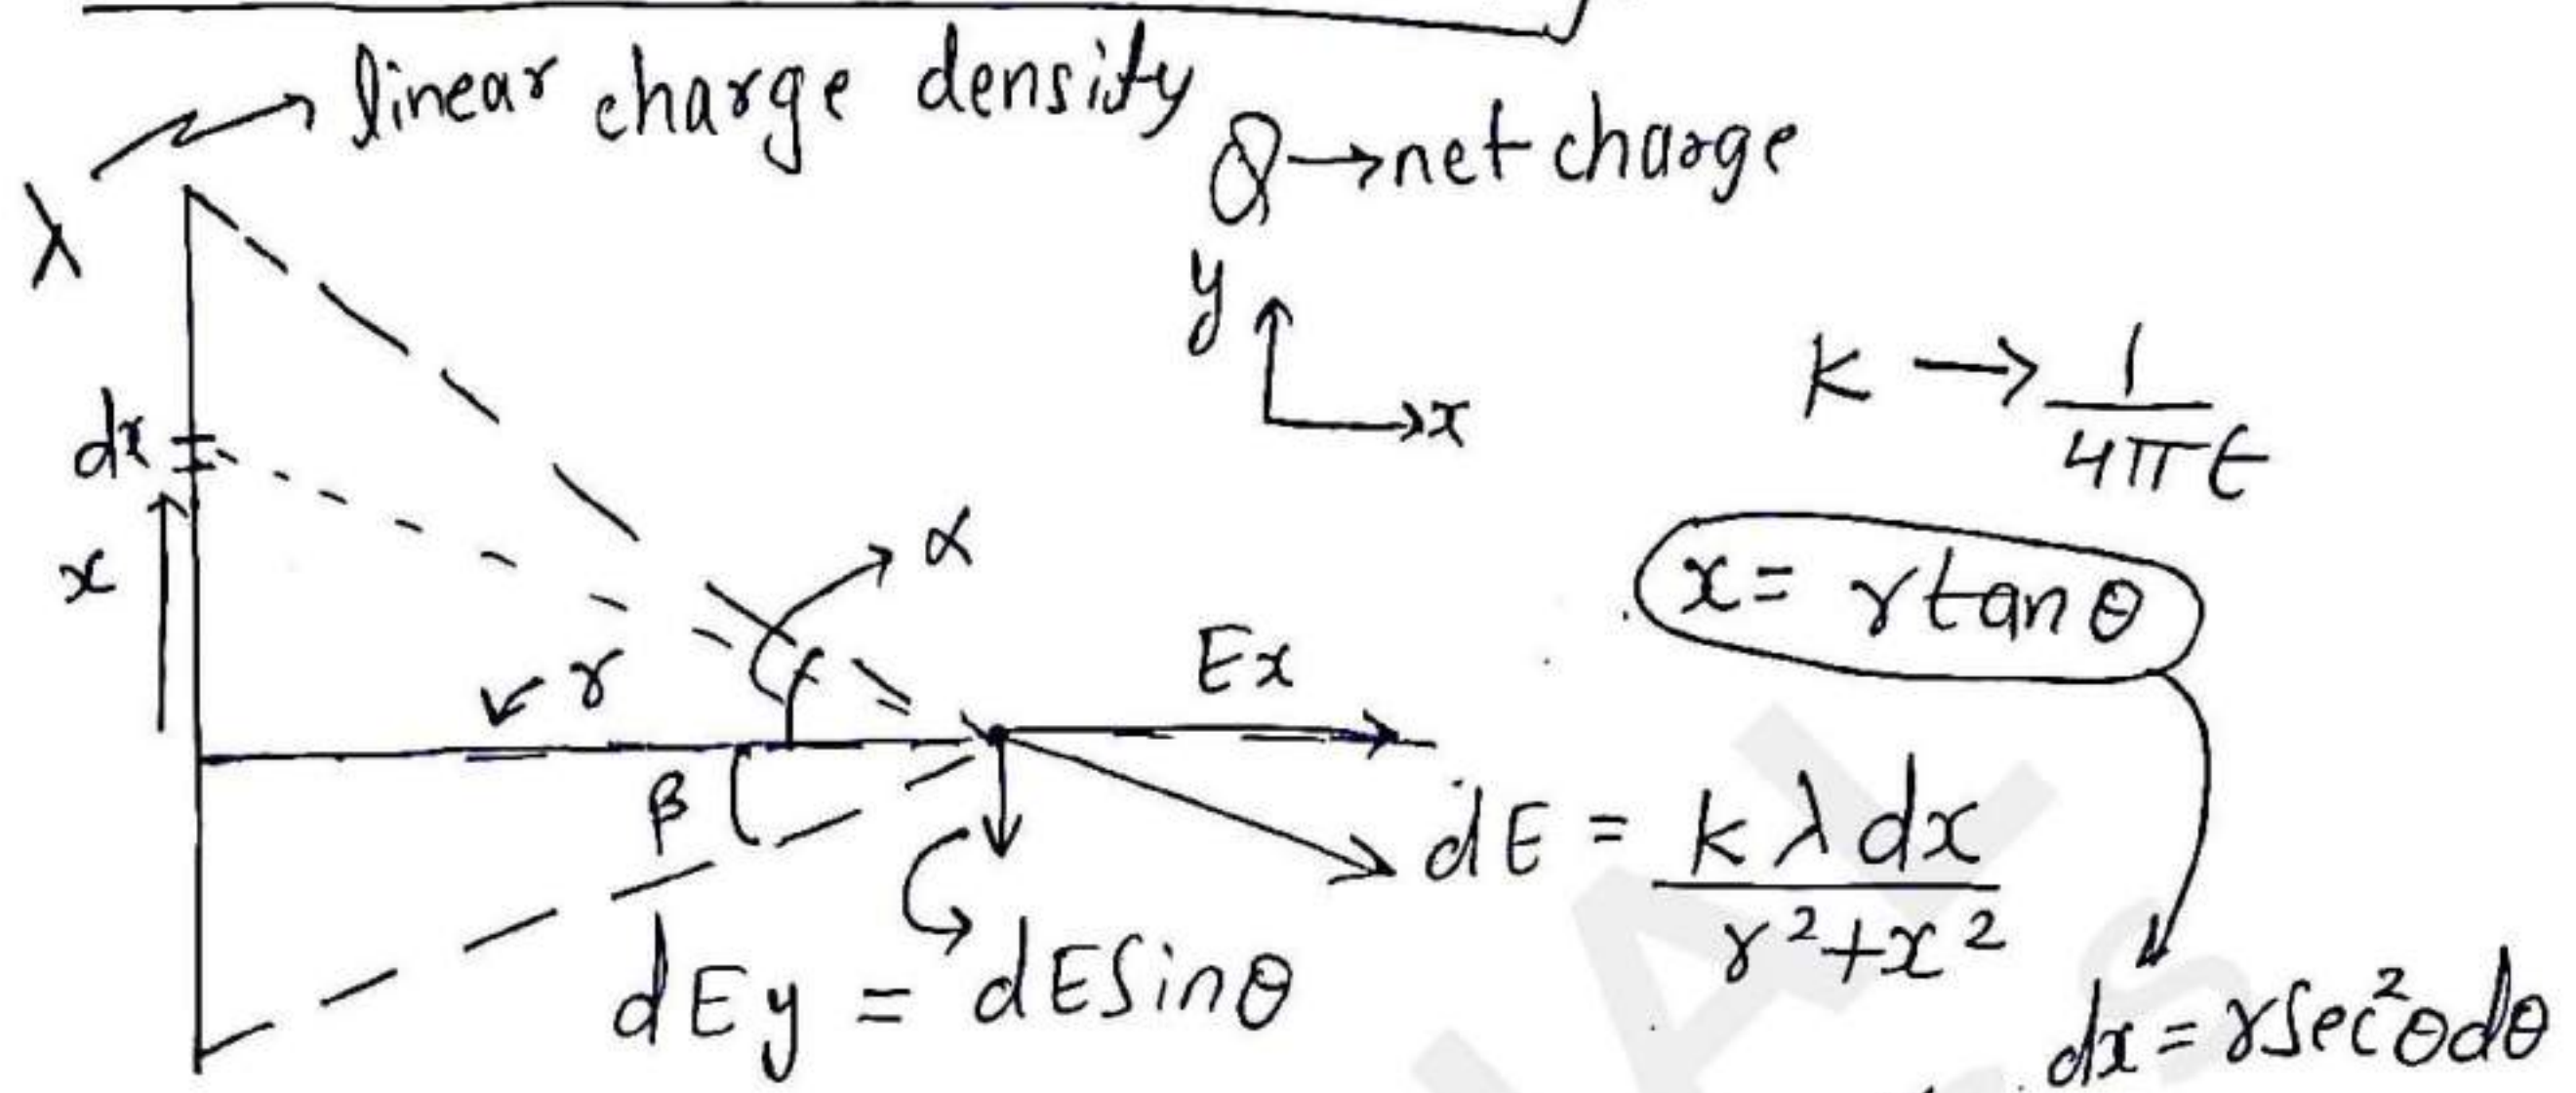 λ → linear charge density
Q → net charge
y
x
K → 1/4πϵ
dx
x
α
x = r tanθ
r
Ex
β
dE = kλdx/r²+x²
dEy = dESinθ
dx = rSec²θdθ